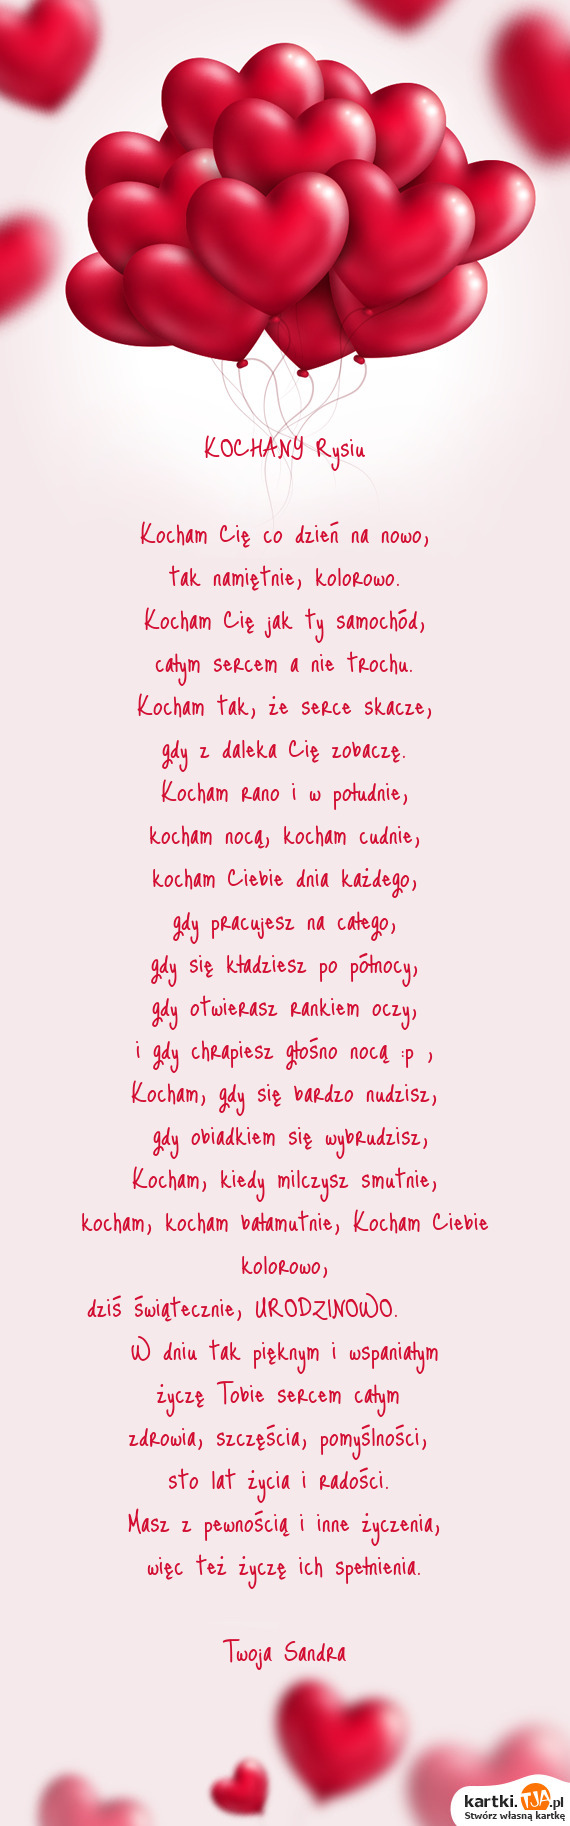 KOCHANY Rysiu
Kocham Cię co dzień na nowo,
tak namiętnie, kolorowo.
Kocham Cię jak ty samochód,
całym sercem a nie trochu.
Kocham tak, że serce skacze,
gdy z daleka Cię zobaczę.
Kocham rano i w południe,
kocham nocą, kocham cudnie,
kocham Ciebie dnia każdego,
gdy pracujesz na całego,
gdy się kładziesz po północy,
gdy otwierasz rankiem oczy,
i gdy chrapiesz głośno nocą :p ,
Kocham, gdy się bardzo nudzisz,
gdy obiadkiem się wybrudzisz,
Kocham, kiedy milczysz smutnie,
kocham, kocham bałamutnie, Kocham Ciebie
kolorowo,
dziś świątecznie, URODZINOWO.
W dniu tak pięknym i wspaniałym
życzę Tobie sercem całym
zdrowia, szczęścia, pomyślności,
sto lat życia i radości.
Masz z pewnością i inne życzenia,
więc też życzę ich spełnienia.
Twoja Sandra
kartki.TJA.pl
Stwórz własną kartkę